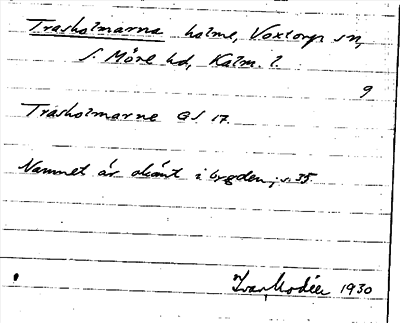 Trasholmarna holme, Voxtorp sn,
S. Möre hd, Kalm. l.
9
Trasholmarne GS 17.
Namnet är okänt i bygden; s. 35.
Ivar Modéer 1930